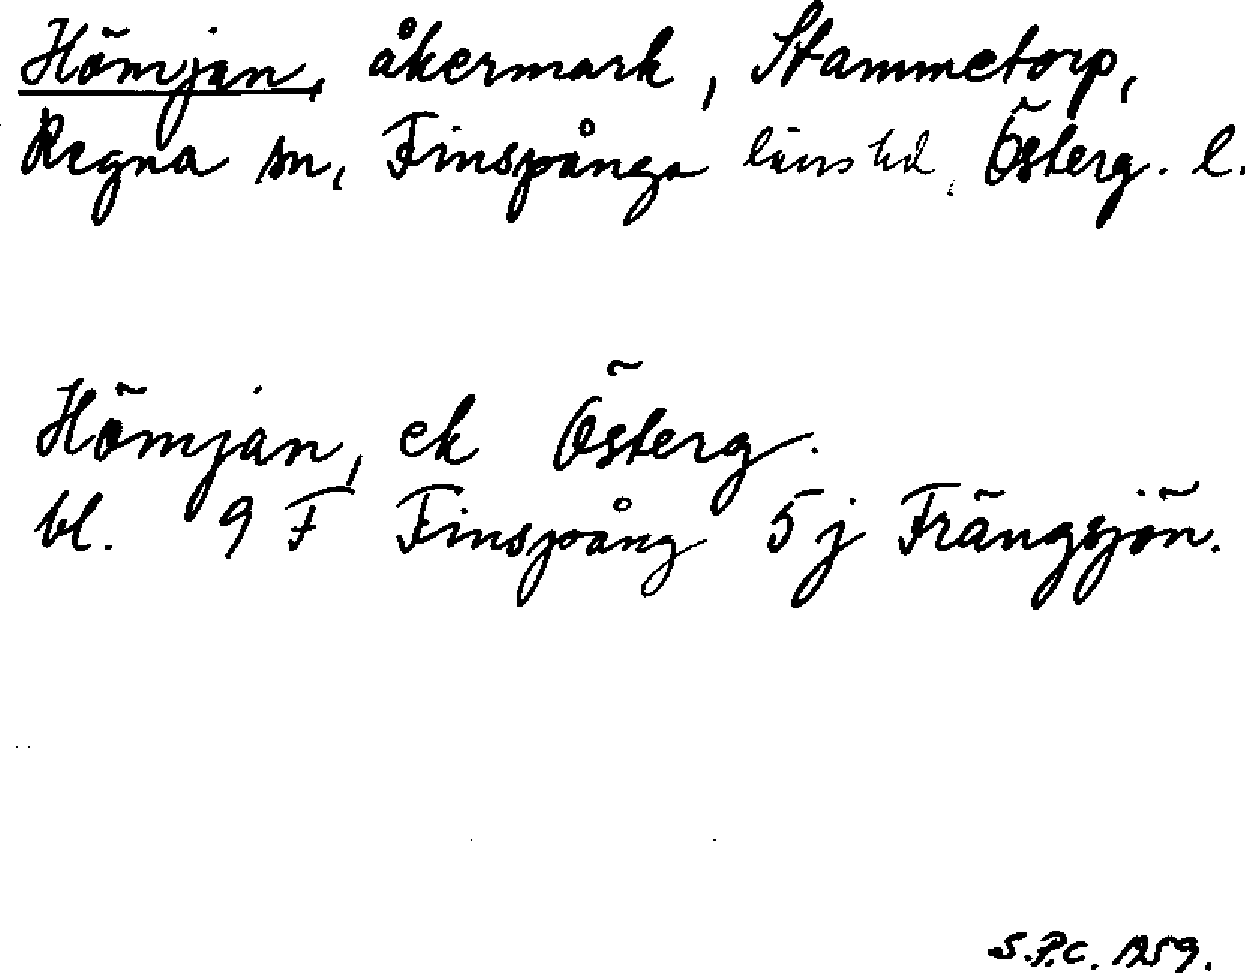 Hömjan, åkermark, Stammetorp,
Regna sn, Finspånga läns hd, Österg. l.
Hömjan, ek Österg.
bl. 9 F Finspång 5 j Frängsjön.
S.P.C. 1959.